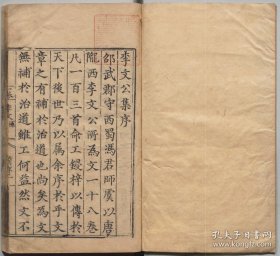 李文公集序
邵武郡守西蜀馮君師虞以唐
隴西李文公所爲文一十八卷
凡一百三首命工鋟梓以傳於
天下後世乃以屬余序於乎文
章之有補於治道也尚矣爲文
無補於治道雖工何益然文不
孔夫子旧书网